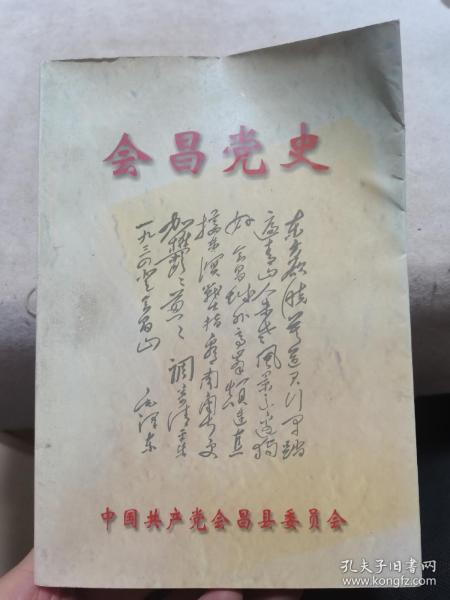 会昌党史
东方欲晓莫道君行早踏
遍青山人未老风景这边独
好会昌城外高峰颠连直
接东溟战士指看南粤更
加欝〻葱〻 调寄清平乐
一九三四登会昌山 毛泽东
中国共产党会昌县委员会
孔夫子旧书网
www.kongfz.com